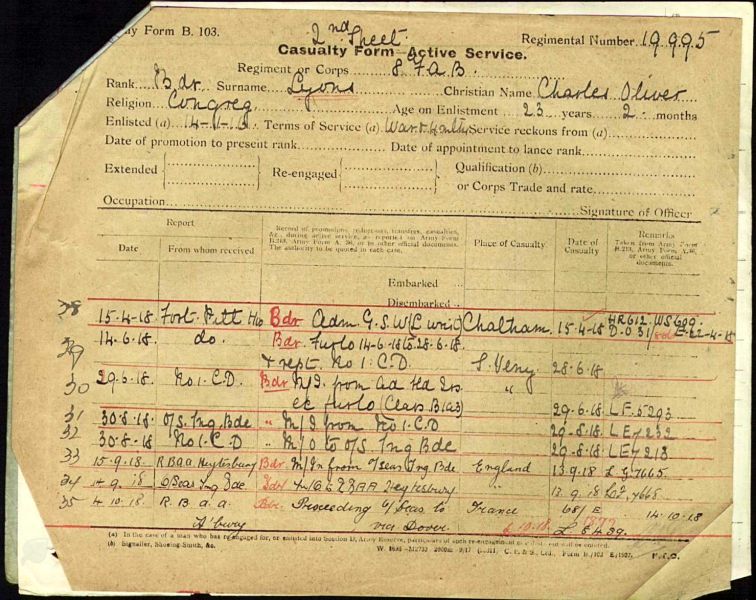 my Form B. 103.
2nd Sheet
Regimental Number 19995
Casualty Form—Active Service.
Regiment or Corps 8 FAB.
Rank Bdr Surname Lyons Christian Name Charles Oliver
Religion Congreg Age on Enlistment 23 years 2 months
Enlisted (a) Terms of Service (a) Service reckons from (a)
Date of promotion to present rank Date of appointment to lance rank
Extended Re-engaged Qualification (b)
or Corps Trade and rate
Occupation Signature of Officer
Report
Date From whom received
Record of promotions, reductions, transfers, casualties, &c., during active service, as reported on Army Form B.213, Army Form A. 36, or in other official documents. The authority to be quoted in each case.
Place of Casualty
Date of Casualty
Remarks
Taken from Army Form B.213, Army Form A.36, or other official documents.
Embarked
Disembarked
15.4.18 Fort Pitt Bdr Adm G.S.W. Chatham 15.4.18 HR612
14.6.18 do. Bdr. Furlo 14-6-18 to 28-6-18
& rept. No 1. C.D. S. Veny 28-6-18
30 29.6.18 No 1. C.D Bdr M/I from Ad Hd Qrs "
ex furlo (Class B1a3) 29-6.18 LF. 5293
31 30.8.18 O/S. Tng Bde " M/I from No 1. C.D 29-8.18
32 30-8-18 No 1. C.D " M/O to O/S Tng Bde 29-8.18
33 15.9.18 RBAA Heytesbury Bdr. M/In from O/seas Tng Bde. England 13.9.18 7665
34 O/Seas Tng Bde RBAA Heytesbury 13.9.18 7665
35 4.10.18 R.B.a.a. Bdr. Proceeding O/Seas to France 68/E 14.10.18
via Dover 6.10.18
(a) In the case of a man who has re-engaged for, or enlisted into Section D, Army Reserve, particulars of such re-engagement or enlistment will be entered.
(b) Signaller, Shoeing Smith, &c.